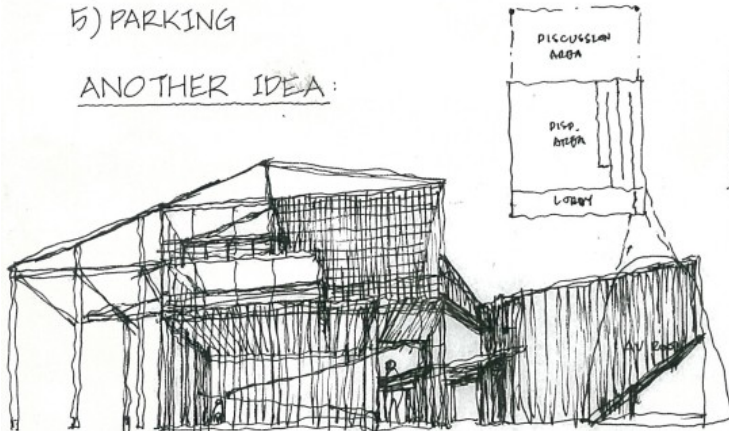 5) PARKING
ANOTHER IDEA:
DISCUSSION
AREA
DISP.
AREA
LOBBY
AV ROOM